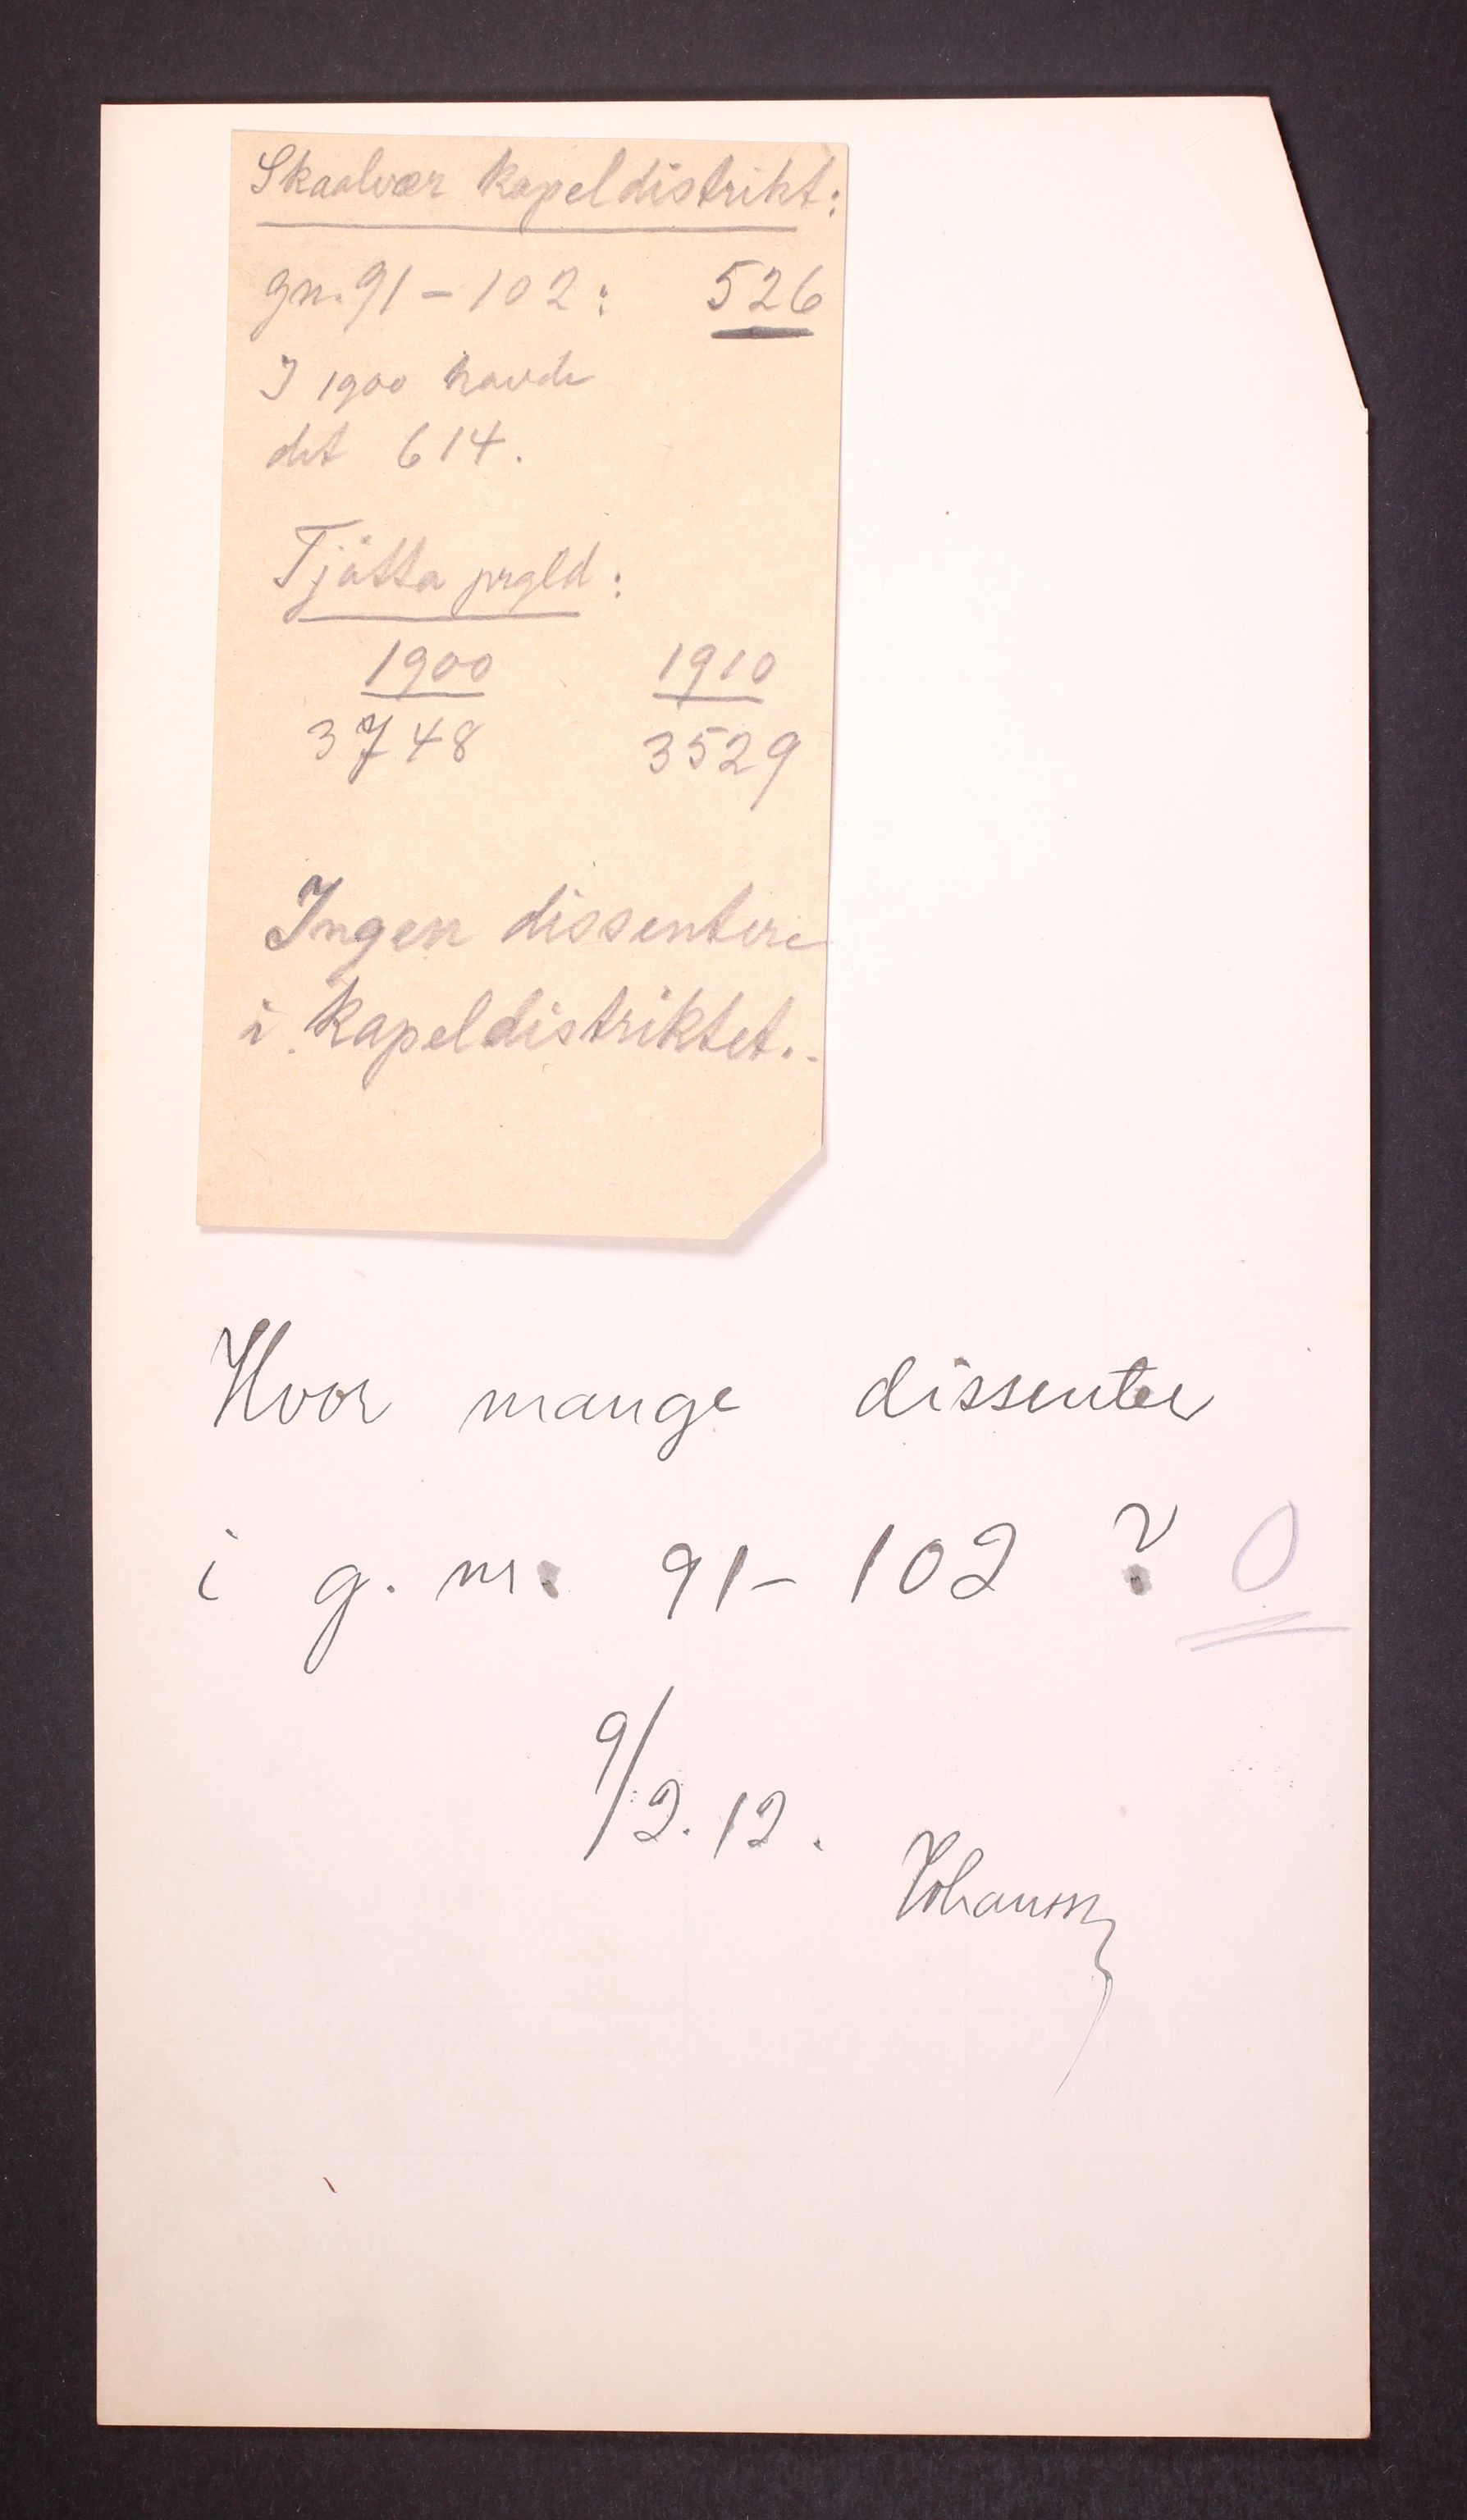 Skaalvær kapeldistrikt:
gn. 91 - 102: 526
I 1900 havde
det 614.
Tjøtta prgld:
1900 1910
3748 3529
Ingen dissentere
i kapeldistriktet.
Hvor mange dissenter
i g. nr. 91 - 102 ? 0
9/2. 12.